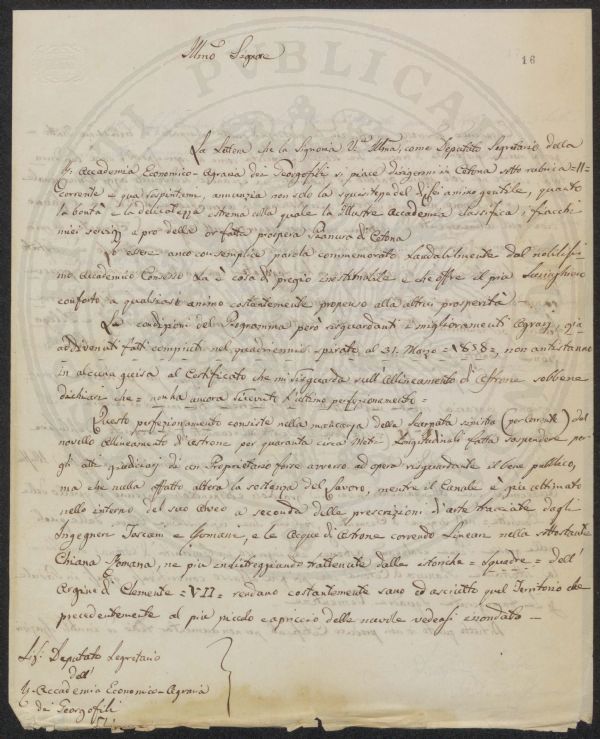 16
Illmo Signore
La Lettera che la Signoria Vra Illma, come Deputato Segretario della
I. Accademia Economico-Agraria dei Georgofili si piace dirigermi in Cetona sotto rubrica =11=
Corrente e qua respintemi, annunzia non solo la squisitezza del di Lei animo gentile, quanto
la bontà e la delicatezza estrema colla quale la illustre Accademia classifica i fiacchi
miei servizi a pro della or fatta prospera Pianura di Cetona
Lo essere anco con semplice parola commemorato laudabilmente dal nobilissi-
mo Accademico Consesso La è cosa di pregio inestimabile e che offre il più lusinghiero
conforto a qualsiasi animo costantemente propenso alla altrui prosperità. —
Le condizioni del Programma però risguardanti i miglioramenti Agrarj, già
addivenuti fatti compiuti nel quadriennio spirato al 31. Marzo =1858=, non antistanno
in alcuna guisa al Certificato che mi risguarda sull'Allineamento di Astrone sebbene
dichiari che = non ha ancora ricevuto l'ultimo perfezionamento =
Questo perfezionamento consiste nella mancanza della Scarpata sinistra (per Corrente) del
novello Allineamento d'Astrone per quaranta circa Metri Longitudinali fatta sospendere per
gli atti giudiciarj di un Proprietario forse avverso ad opera risguardante il bene pubblico,
ma che nulla affatto altera la sostanza del Lavoro, mentre il Canale è già ultimato
nello interno del suo Alveo a seconda delle prescrizioni d'arte tracciate dagli
Ingegneri Toscani e Romani, e le Acque di Astrone correndo Lineari nella sottostante
Chiana Romana, ne più indietreggiando trattenute dalle istoriche = Squadre = dell'
Argine di Clemente =VII= rendano costantemente sano ed asciutto quel Territorio che
precedentemente al più piccolo capriccio delle nuvole vedeasi inondato —
Sig: Deputato Segretario
dell'
I. Accademia Economico-Agraria
dei Georgofili